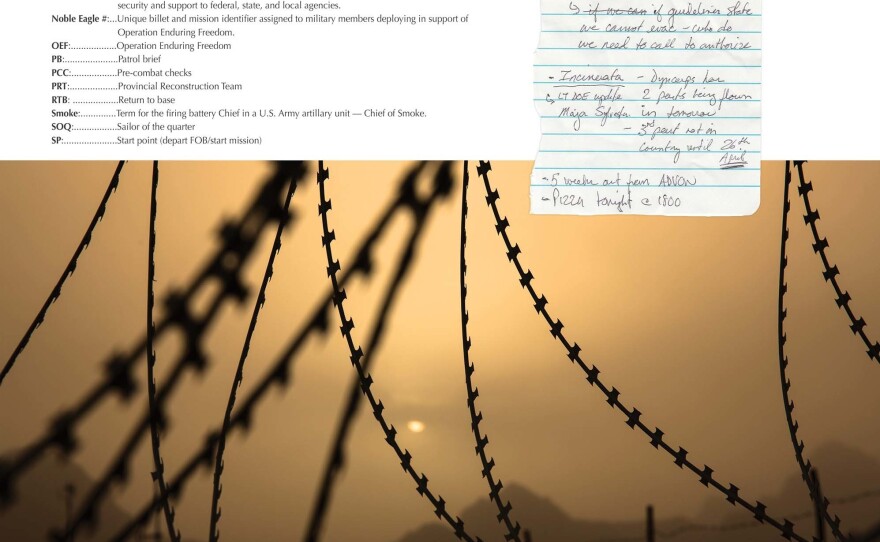 security and support to federal, state, and local agencies.
Noble Eagle #:...Unique billet and mission identifier assigned to military members deploying in support of
Operation Enduring Freedom.
OEF:...................Operation Enduring Freedom
PB:......................Patrol brief
PCC:...................Pre-combat checks
PRT:....................Provincial Reconstruction Team
RTB: ...................Return to base
Smoke:...............Term for the firing battery Chief in a U.S. Army artillary unit — Chief of Smoke.
SOQ:..................Sailor of the quarter
SP:......................Start point (depart FOB/start mission)
if we can if guidelines state
we cannot evac - who do
we need to call to authorize
- Incinerata - Dyncorps has
update 2 parts being flown
in tomorrow
- 3rd part not in
country until 26th
April
- 5 weeks out from ADVON
- Pizza tonight @ 1800